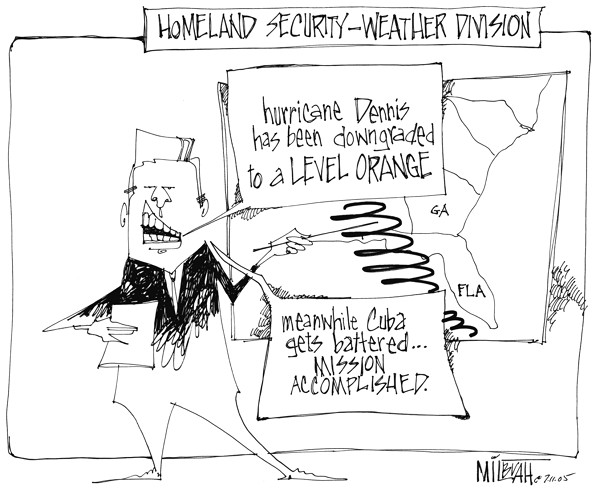 HOMELAND SECURITY-WEATHER DIVISION
hurricane Dennis
has been downgraded
to a LEVEL ORANGE
GA
FLA
meanwhile Cuba
gets battered...
MISSION
ACCOMPLISHED.
MILBRAH © 7.11.05